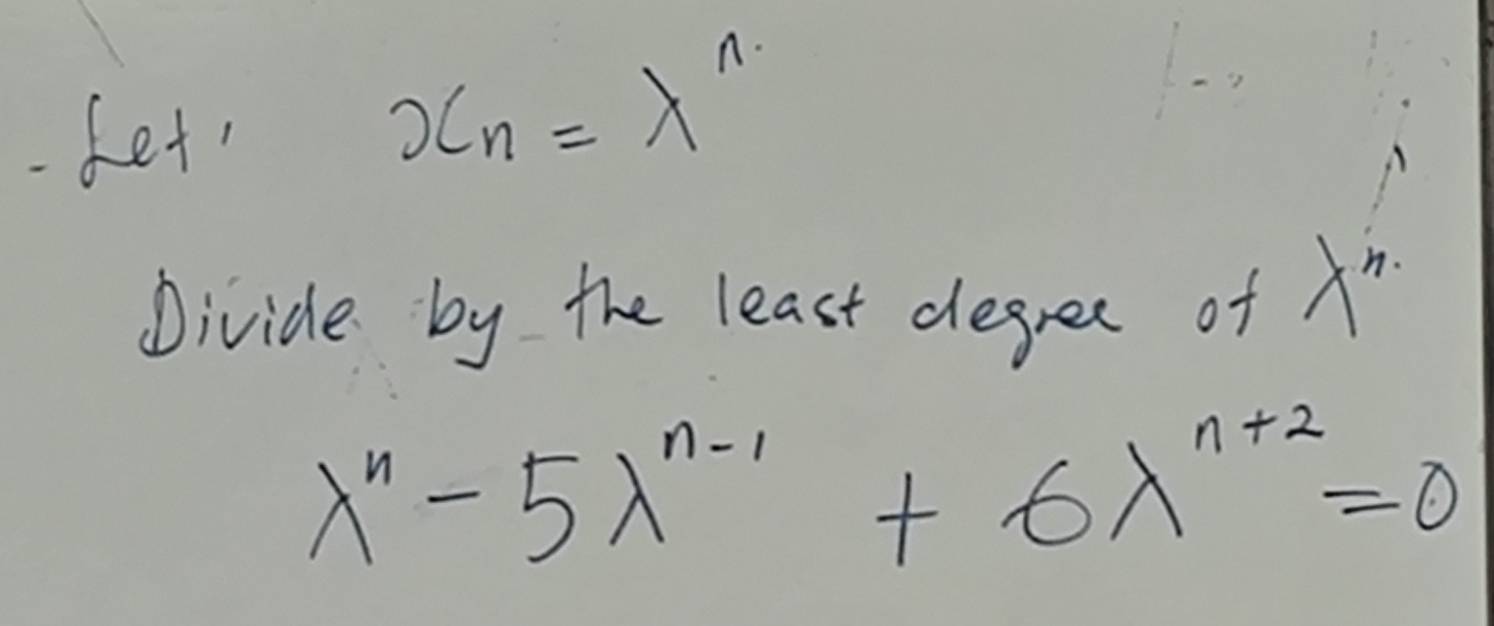 - Let, xn = λⁿ.
Divide by the least degree of λⁿ.
λⁿ - 5λⁿ⁻¹ + 6λⁿ⁺² = 0